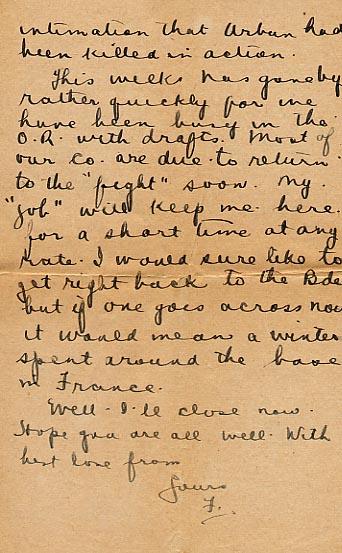 intimation that Urban had
been killed in action.
This weeks has gone by
rather quickly for we
have been busy in the
O.R. with drafts. Most of
our Co. are due to return
to the "fight" soon. My
"job" will keep me here
for a short time at any
rate. I would sure like to
get right back to the Bde
but if one goes across now
it would mean a winter
spent around the base
in France.
Well I'll close now.
Hope you are all well. With
best love from
Yours
F.